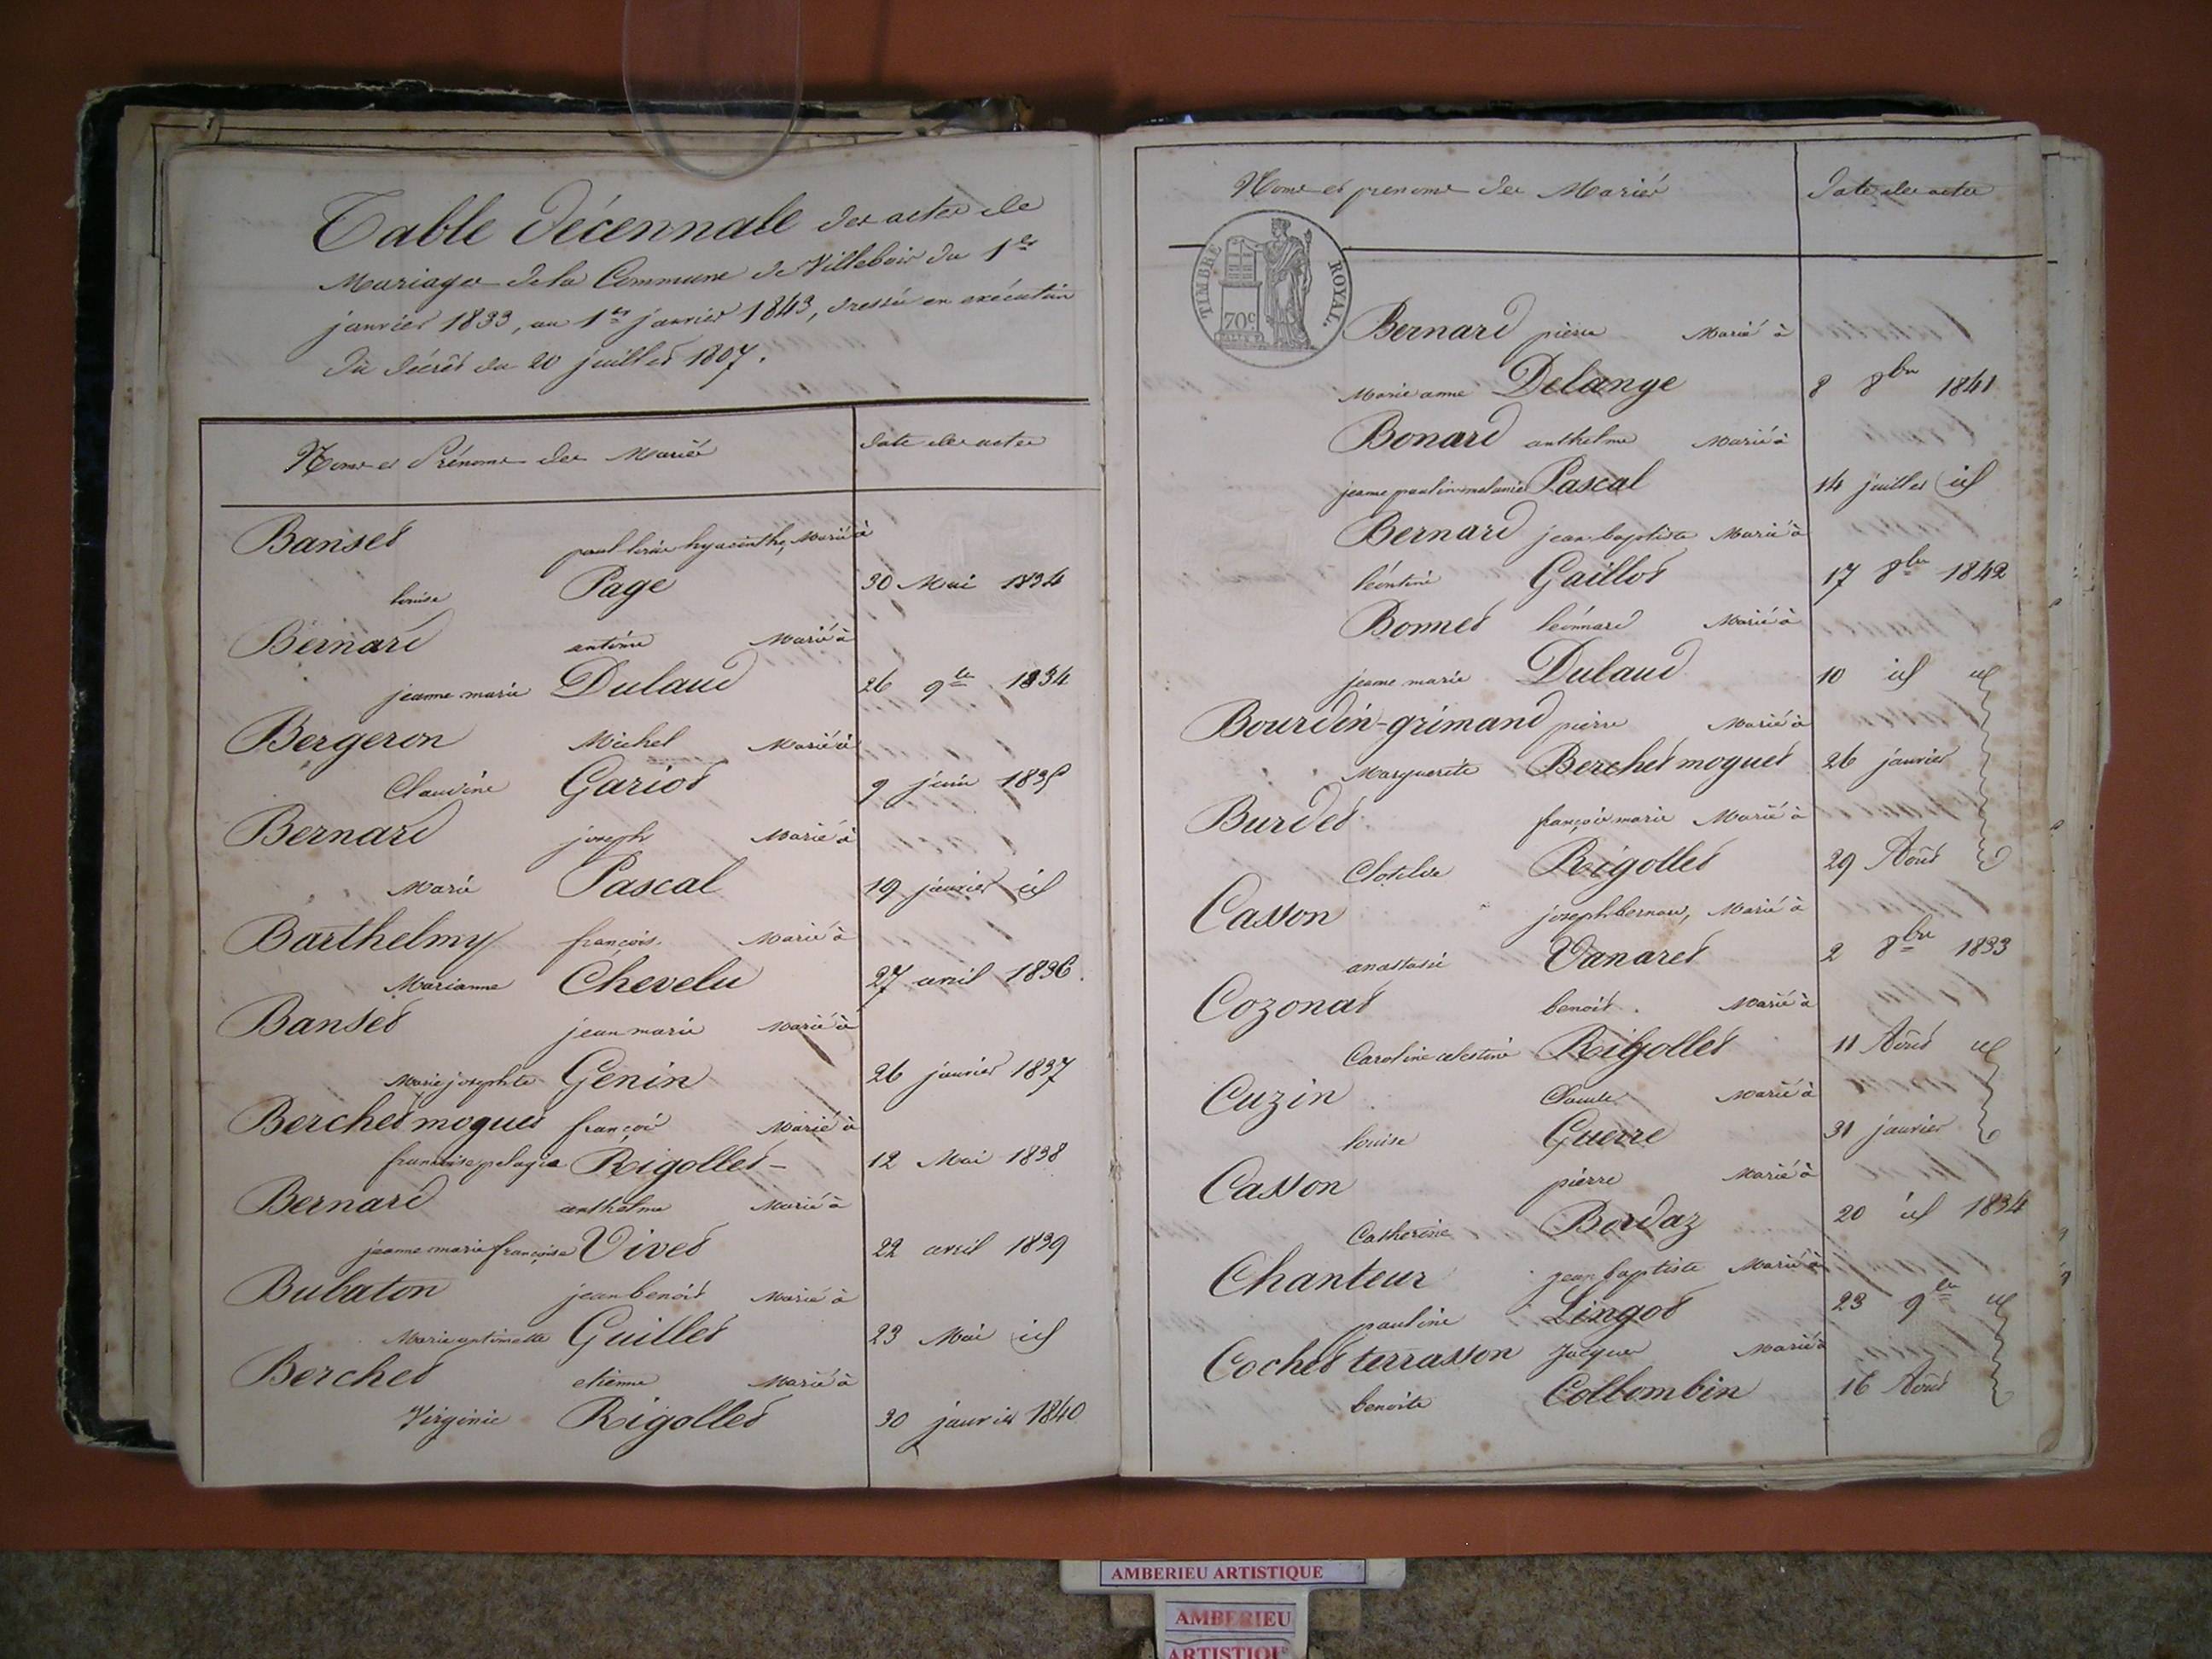 Table décennale des actes de
Mariages de la Commune de Villebois du 1er
janvier 1833, au 1er janvier 1843, dressée en exécution
du décret du 20 juillet 1807.
Noms et Prénoms des Mariés
date des actes
Banset paul hyacinthe, Marié à
louise Page 30 Mai 1834
Bernard antoine Marié à
jeanne marie Dulaud 26 9bre 1834
Bergeron Michel Marié à
Claudine Gariot 9 juin 1835
Bernard joseph Marié à
Marie Pascal 19 janvier id
Barthelmy françois Marié à
Marianne Chevelu 27 avril 1836.
Banset jean marie Marié à
Marie josephte Genin 26 janvier 1837
Berchet moguet françois Marié à
francoise pelagie Rigollet - 12 Mai 1838
Bernard anthelme Marié à
jeanne marie françoise Vivet 22 avril 1839
Bubaton jean benoit Marié à
Marie antoinette Guillet 23 Mai id
Berchet etienne Marié à
Virginie Rigollet 30 janvier 1840
Noms et prenoms des Mariés
date des actes
TIMBRE ROYAL.
70c
Bernard pierre Marié à
Marie anne Delange 8 8bre 1841
Bonard anthelme Marié à
jeanne pauline melanie Pascal 14 juillet id
Bernard jean baptiste Marié à
léontine Gaillot 17 8bre 1842
Bonnet léonnard Marié à
jeanne marie Dulaud 10 id id
Bourdin-grimand pierre Marié à
Marguerite Berchet moguet 26 janvier
Burdet françois marie Marié à
Clotilde Rigollet 29 Août
Casson joseph bernard, Marié à
anastasie Vanaret 2 8bre 1833
Cozonat benoit Marié à
Caroline celestine Rigollet 11 Août id
Cuzin Claude Marié à
louise Guerre 31 janvier
Casson pierre Marié à
Catherine Bordaz 20 id 1834
Chanteur jean baptiste Marié à
pauline Lingot 23 9bre id
Cochet terrasson Jacques Marié à
benoite Collombin 16 Août
AMBERIEU ARTISTIQUE
AMBERIEU
ARTISTIQUE